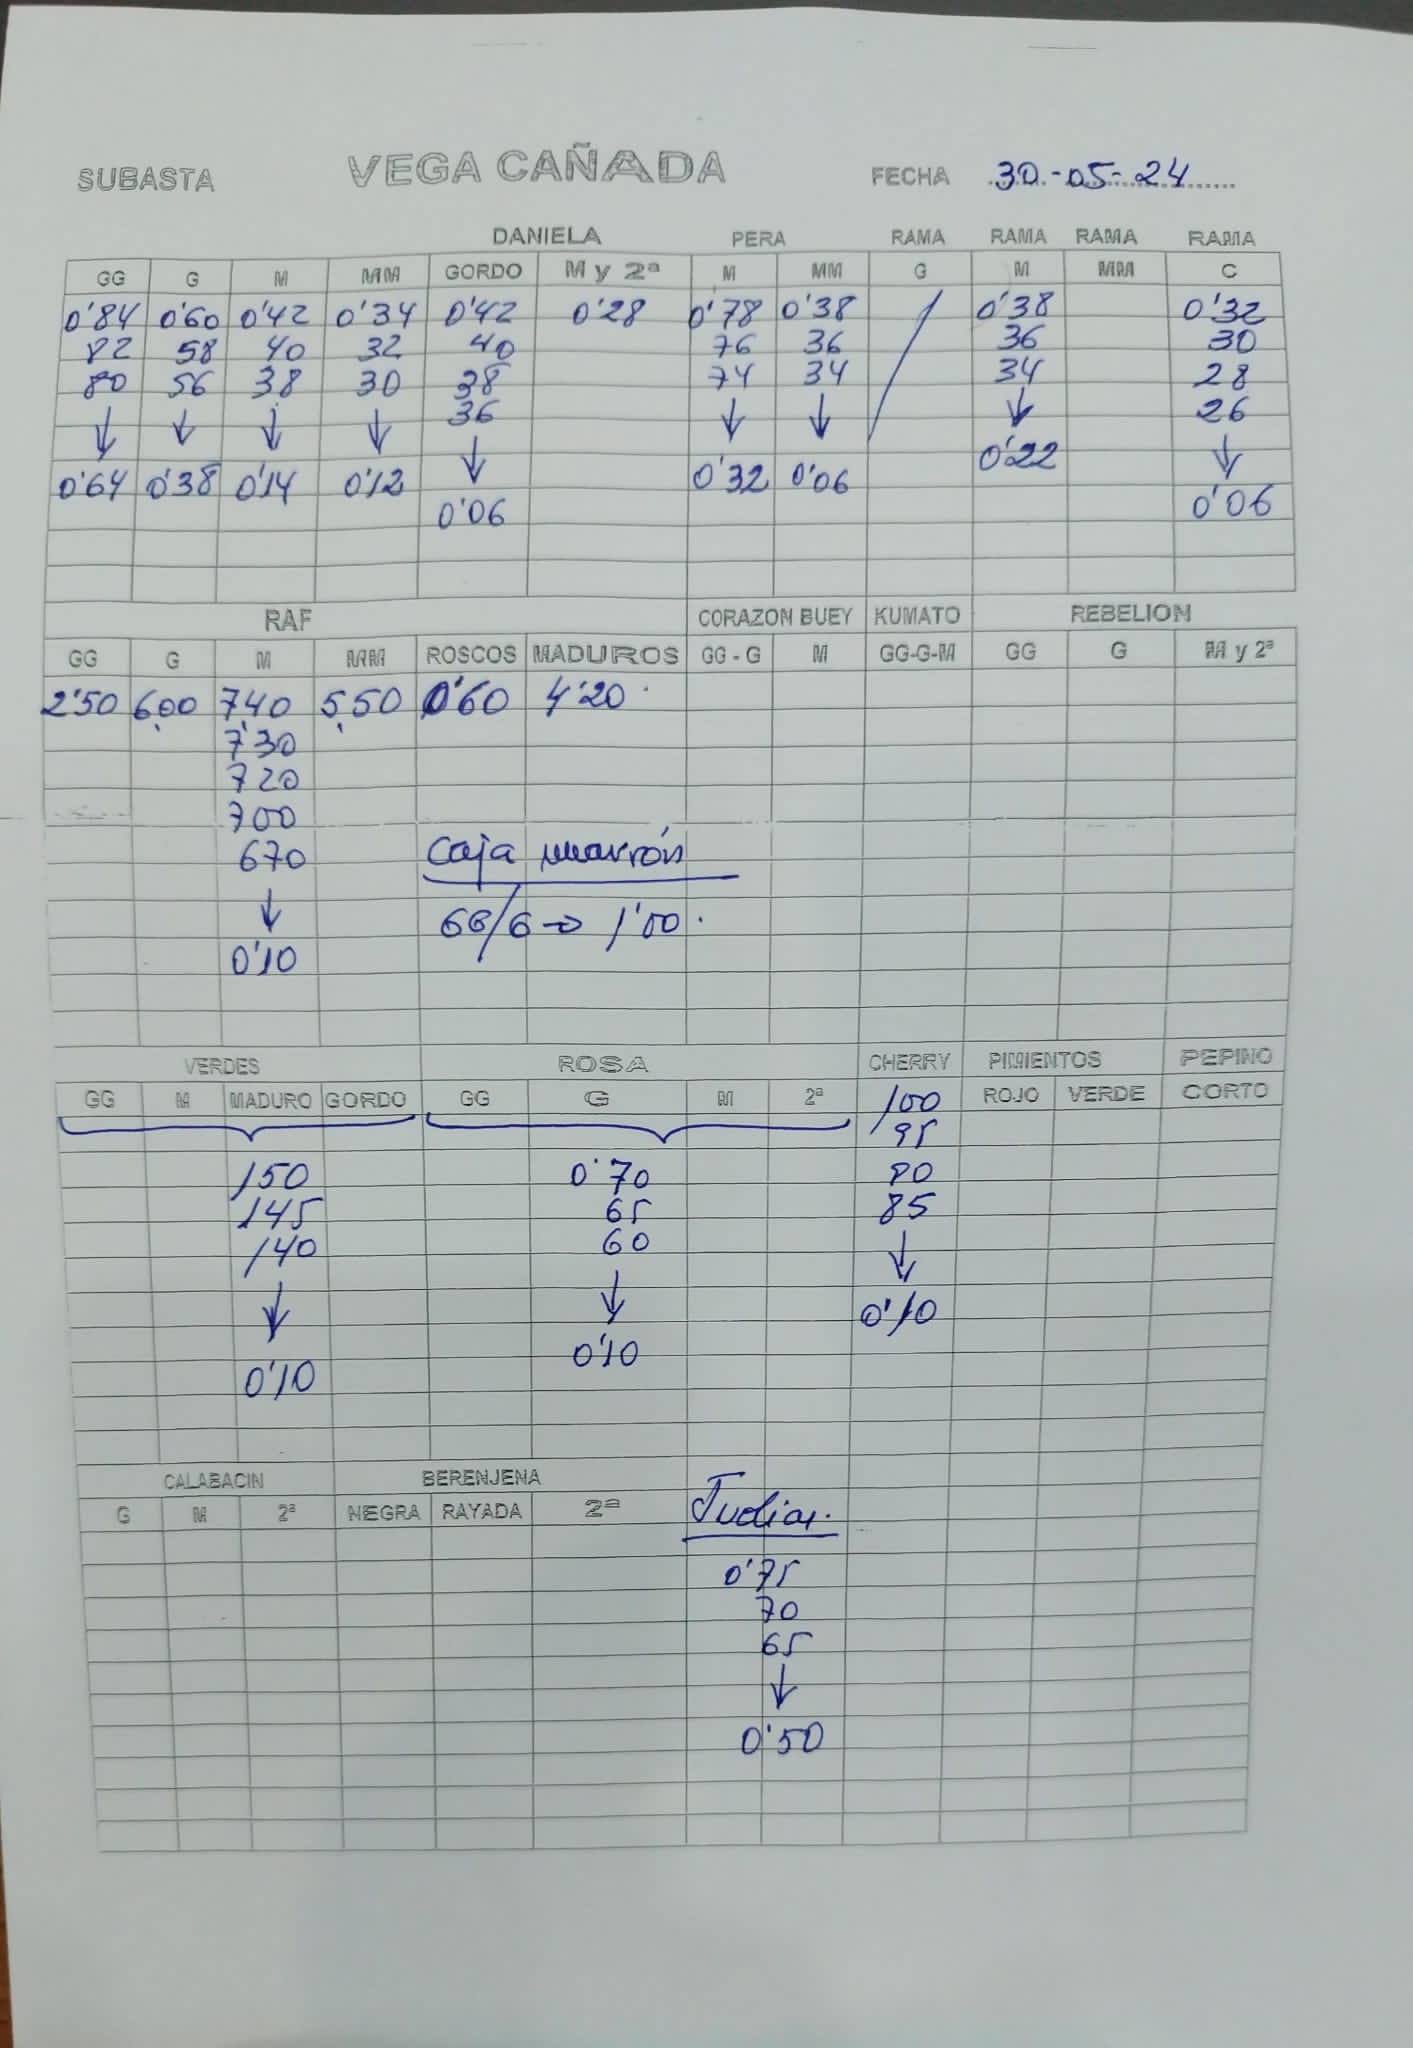 SUBASTA VEGA CAÑADA FECHA 30-05-24
DANIELA PERA RAMA RAMA RAMA RAMA
GG G M MM GORDO M y 2ª M MM G M MM C
0'84 0'60 0'42 0'34 0'42 0'28 0'78 0'38 / 0'38 0'32
82 58 40 32 40 76 36 36 30
80 56 38 30 38 74 34 34 28
↓ ↓ ↓ ↓ 36 ↓ ↓ ↓ 26
0'64 0'38 0'14 0'12 ↓ 0'32 0'06 0'22 ↓
0'06 0'06
RAF CORAZON BUEY KUMATO REBELION
GG G M MM ROSCOS MADUROS GG - G M GG-G-M GG G M y 2ª
2'50 6,00 7,40 5,50 0'60 4'20
7'30
720
700
670 Caja marrón
↓ 6G/6 → 1'00
0'10
VERDES ROSA CHERRY PIMIENTOS PEPINO
GG M MADURO GORDO GG G M 2ª 100 ROJO VERDE CORTO
95
150 0'70 90
145 65 85
140 60 ↓
↓ ↓ 0'10
0'10 0'10
CALABACIN BERENJENA
G M 2ª NEGRA RAYADA 2ª Judias.
0'75
70
65
↓
0'50